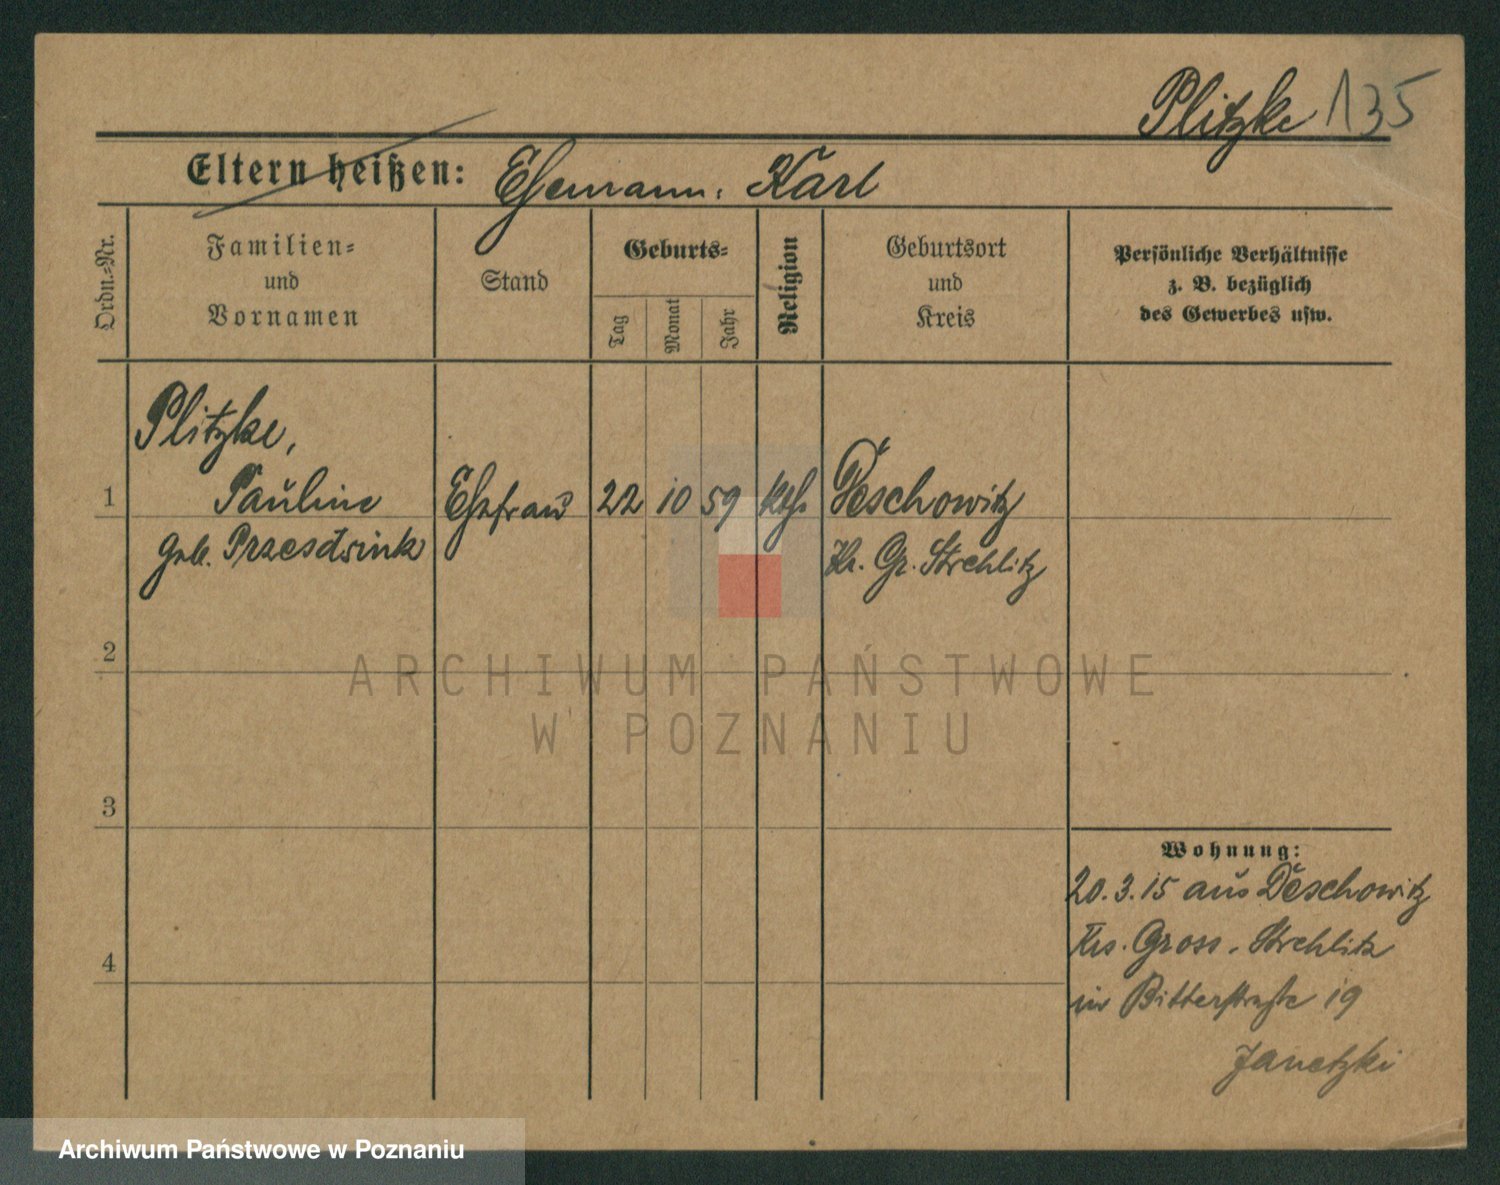 Plitzke 135
Eltern heißen: Ehemann: Karl
Ordn.=Nr.
Familien=
und
Vornamen
Stand
Geburts=
Tag
Monat
Jahr
Religion
Geburtsort
und
Kreis
Persönliche Verhältnisse
z. B. bezüglich
des Gewerbes usw.
Plitzke,
1 Pauline Ehefrau 22 10 59 kth. Deschowitz
geb. Przesdzink Kr. Gr. Strehlitz
2
3
4
Wohnung:
20.3.15 aus Deschowitz
Krs. Gross-Strehlitz
in Bitterstraße 19
Janetzki
ARCHIWUM PAŃSTWOWE
W POZNANIU
Archiwum Państwowe w Poznaniu